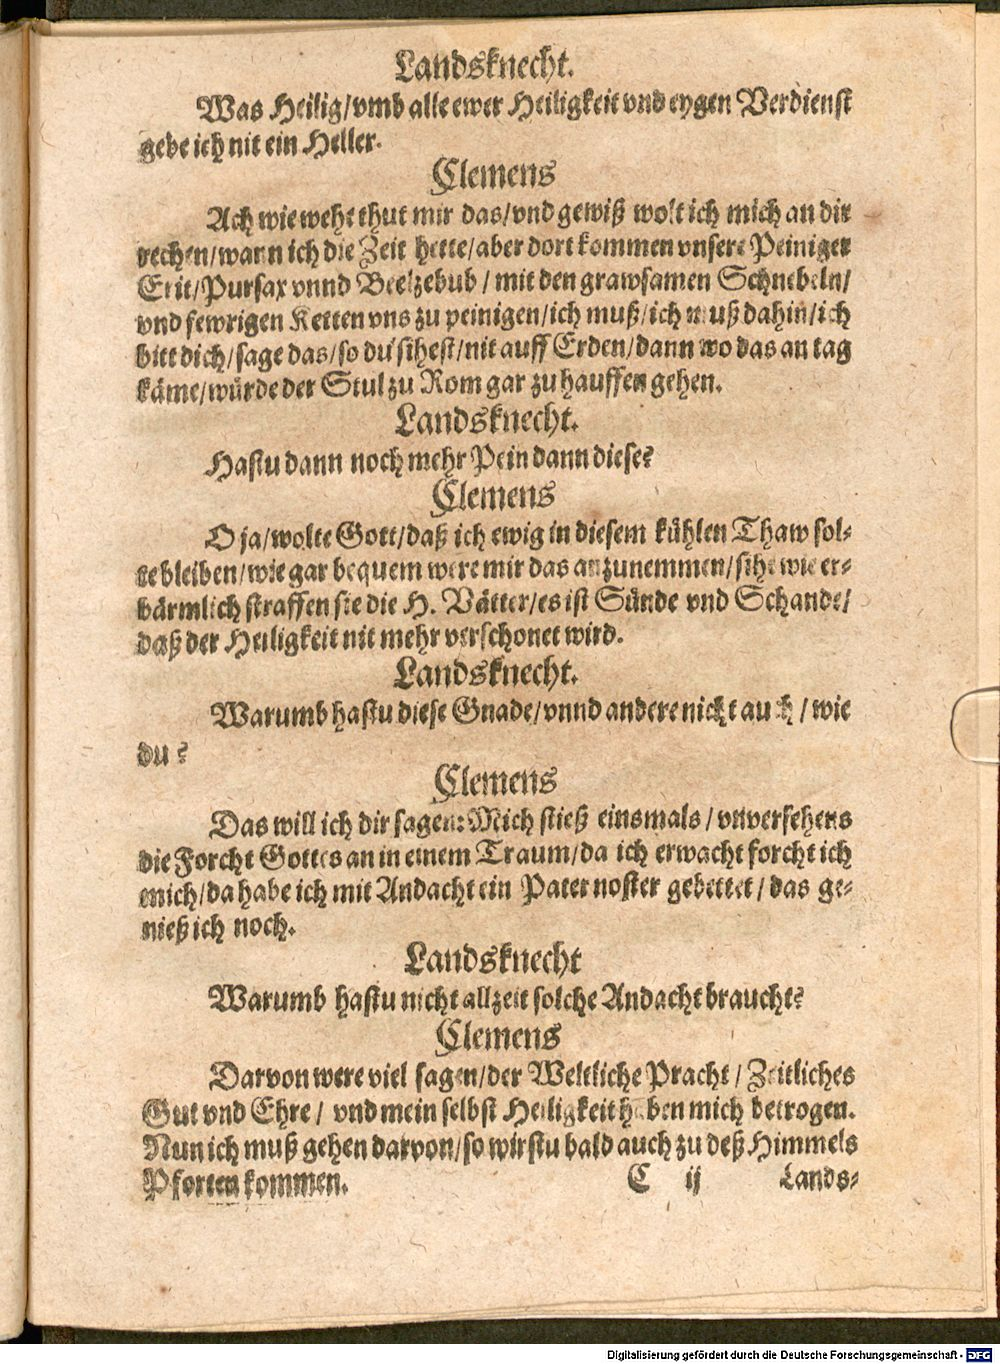 Landsknecht.
Was Heilig/vmb alle ewer Heiligkeit vnd eygen Verdienst
gebe ich nit ein Heller.
Clemens
Ach wie wehe thut mir das/vnd gewiß wolt ich mich an dir
rechen/wann ich die Zeit hette/aber dort kommen vnsere Peiniger
Erit/Pursax vnnd Beelzebub/mit den grawsamen Schnebeln/
vnd fewrigen Ketten vns zu peinigen/ich muß/ich muß dahin/ich
bitt dich/sage das/so du sihest/nit auff Erden/dann wo das an tag
käme/würde der Stul zu Rom gar zu hauffen gehen.
Landsknecht.
Hastu dann noch mehr Pein dann diese?
Clemens
O ja/wolte Gott/daß ich ewig in diesem kühlen Thaw sol-
te bleiben/wie gar bequem were mir das anzunemmen/sihe wie er-
bärmlich straffen sie die H. Vätter/es ist Sünde vnd Schande/
daß der Heiligkeit nit mehr verschonet wird.
Landsknecht.
Warumb hastu diese Gnade/vnnd andere nicht auch/wie
du?
Clemens
Das will ich dir sagen: Mich stieß einsmals/vnversehens
die Forcht Gottes an in einem Traum/da ich erwacht forcht ich
mich/da habe ich mit Andacht ein Pater noster gebettet/das ge-
nieß ich noch.
Landsknecht
Warumb hastu nicht allzeit solche Andacht braucht?
Clemens
Darvon were viel sagen/der Weltliche Pracht/Zeitliches
Gut vnd Ehre/vnd mein selbst Heiligkeit haben mich betrogen.
Nun ich muß gehen darvon/so wirstu bald auch zu deß Himmels
Pforten kommen.
C ij Lands-
Digitalisierung gefördert durch die Deutsche Forschungsgemeinschaft - DFG